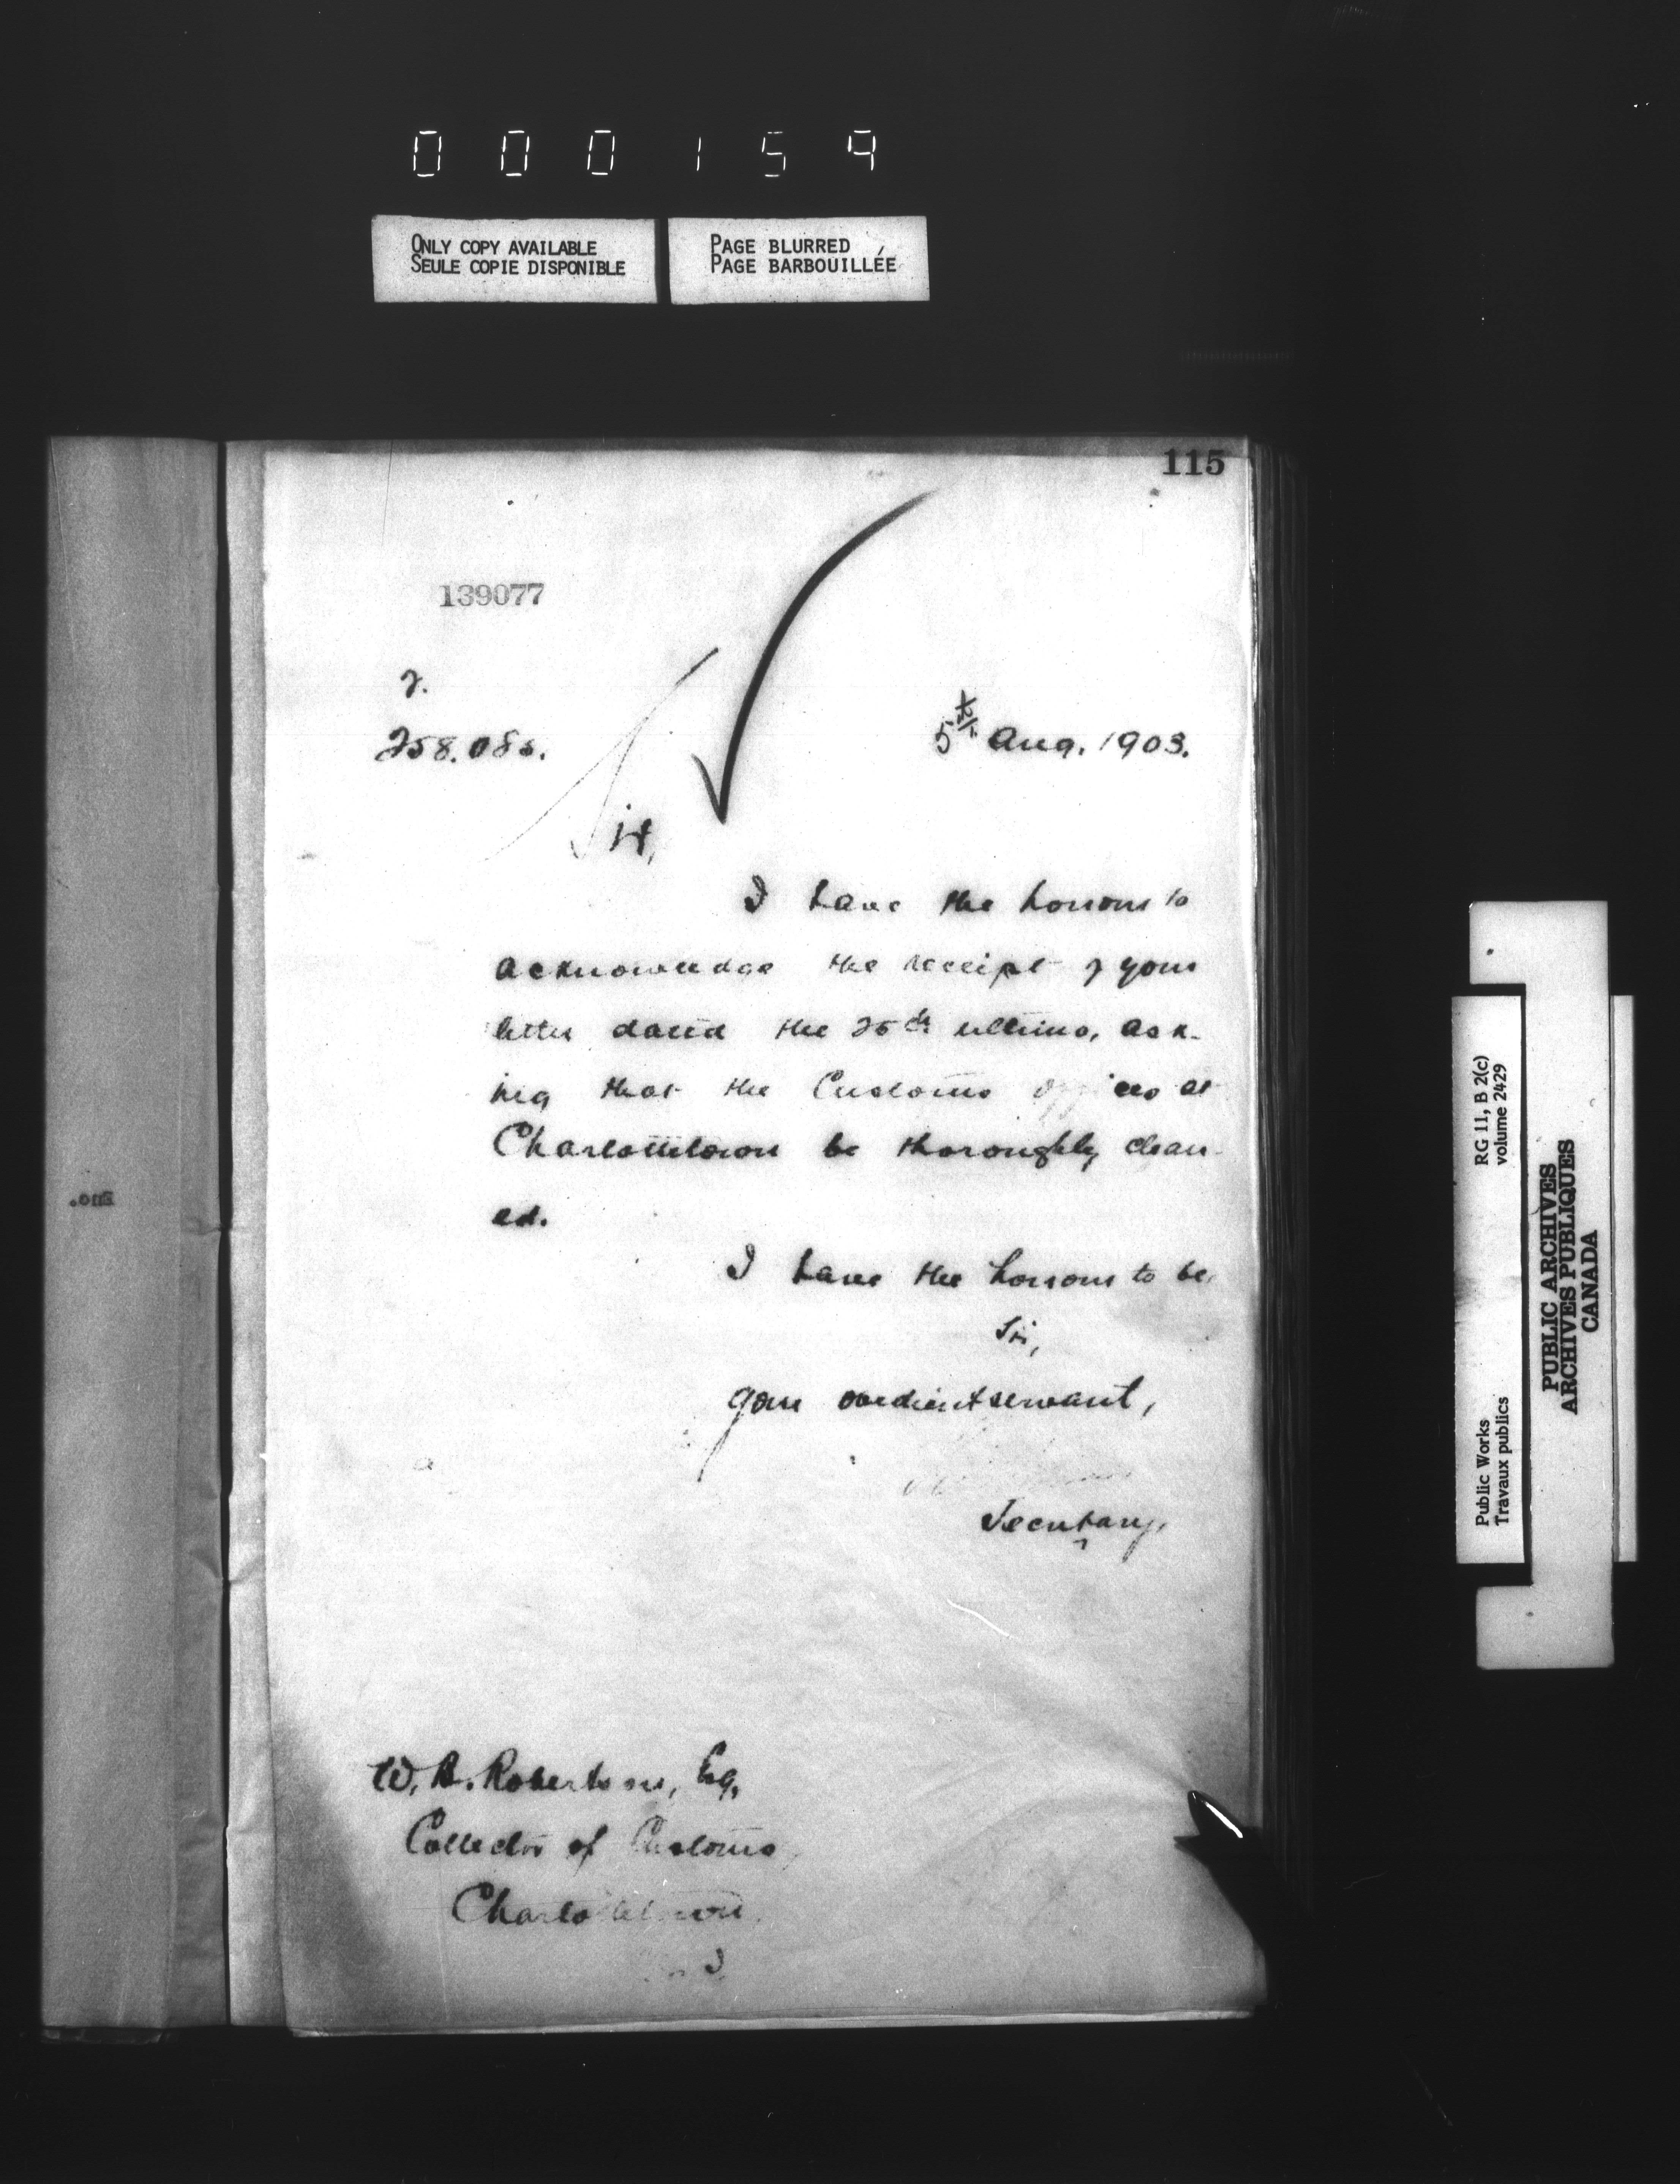 000159
ONLY COPY AVAILABLE
SEULE COPIE DISPONIBLE
PAGE BLURRED
PAGE BARBOUILLÉE
115
139077
258.085.
5th Aug. 1903.
Sir,
I have the honour to
acknowledge the receipt of your
letter dated the 25th ultimo, ask-
ing that the Customs offices at
Charlottetown be thoroughly clean-
ed.
I have the honour to be,
Sir,
Your obedient servant,
Secretary.
W. B. Robertson, Esq.
Collector of Customs,
Charlottetown.
Enc.
Public Works
Travaux publics
RG 11, B 2(c)
volume 2429
PUBLIC ARCHIVES
ARCHIVES PUBLIQUES
CANADA